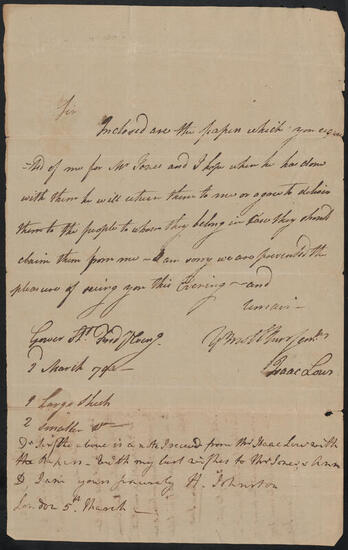 Sir
Inclosed are the papers which you reques
=ted of me for Mr Jones and I hope when he has done
with them he will return them to me or agree to deliver
them to the people to whom they belong in Case they should
claim them from me — I am sorry we are prevented the
pleasure of seeing you this Evening — and
remain
Gower St. Wed
2 March 179
Isaac Low
9 Large Sheets
2 Smaller Do
Dr Sir the above is a note I received from Mr Isaac Low with
the Papers — with my best wishes to Mrs Jones & Ann
I am yours sincerely H. Johnston
London 5th March —